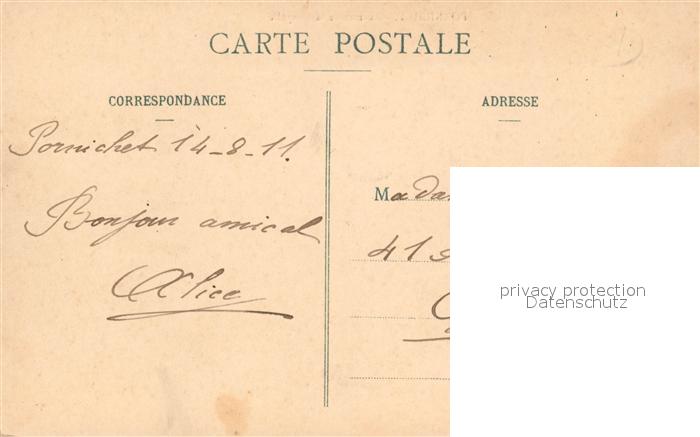 CARTE POSTALE
CORRESPONDANCE
ADRESSE
Pornichet 14-8-11.
Bonjour amical
Alice
Mada
41
privacy protection
Datenschutz